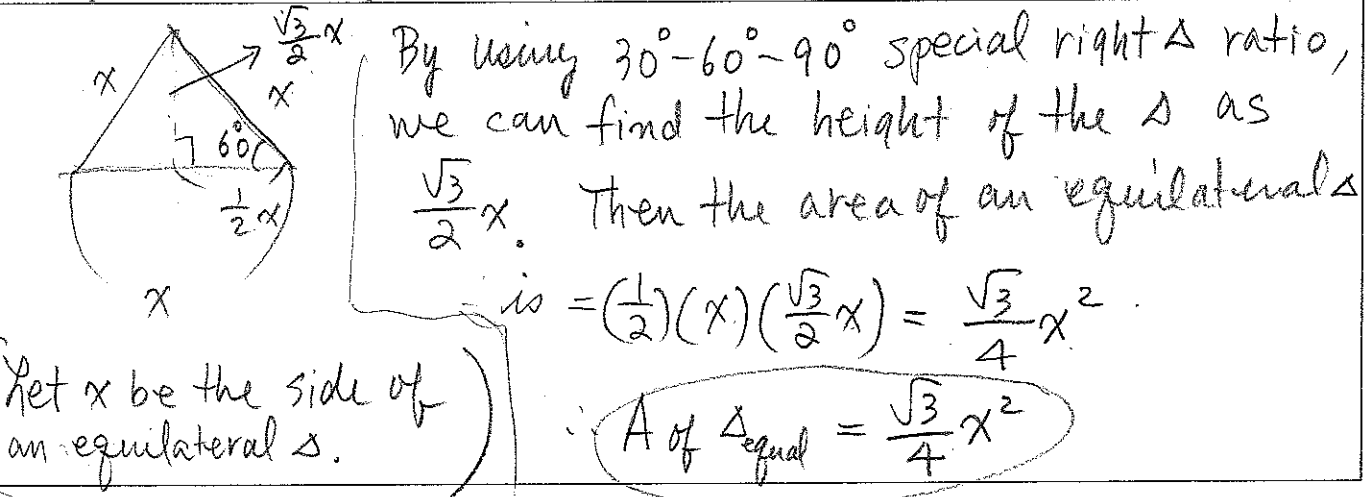 √3/2 x
x
x
60°
1/2 x
x
Let x be the side of
an equilateral Δ.
By using 30°-60°-90° special right Δ ratio,
we can find the height of the Δ as
√3/2 x. Then the area of an equilateral Δ
is = (1/2)(x)(√3/2 x) = √3/4 x².
∴ A of Δequal = √3/4 x²